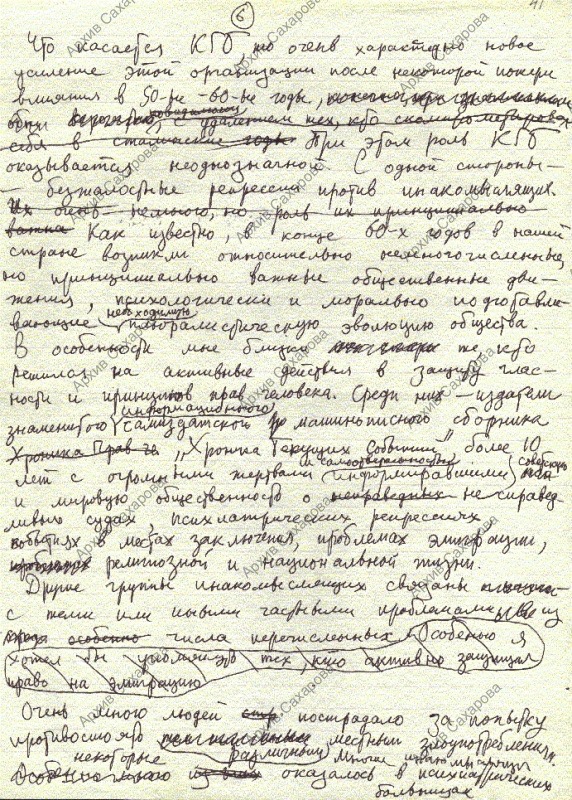 6
41
Что касается КГБ, то очень характерно новое
усиление этой организации после некоторой потери
влияния в 50-х - 60-х годы,
с удалением тех, кто скомпрометировал
себя в сталинские годы При этом роль КГБ
оказывается неоднозначной. С одной стороны -
- безжалостные репрессии против инакомыслящих.
Их очень немного, но роль их принципиально
важна Как известно, в конце 60-х годов в нашей
стране возникли относительно немногочисленные,
но принципиально важные общественные дви-
жения, психологически и морально подготавли-
вающие необходимую плюралистическую эволюцию общества.
В особенности мне близки те, кто
решился на активные действия в защиту глас-
ности и принципов прав человека. Среди них - издатели
знаменитого информационного самиздатского машинописного сборника
"Хроника Текущих Событий" более 10
лет с огромными жертвами и самоотверженностью информировавшими советскую
и мировую общественность о несправед-
ливых судах, психиатрических репрессиях,
событиях в местах заключения, проблемах эмиграции,
религиозной и национальной жизни.
Другие группы инакомыслящих связаны
с теми или иными частными проблемами из
числа перечисленных. Особенно я
хотел бы тех, кто активно защищал
право на эмиграцию
Очень много людей пострадало за попытку
противостоять различным местным злоупотреблениям,
некоторые многие инакомыслящие
оказалось в психиатрических
больницах
Архив Сахарова